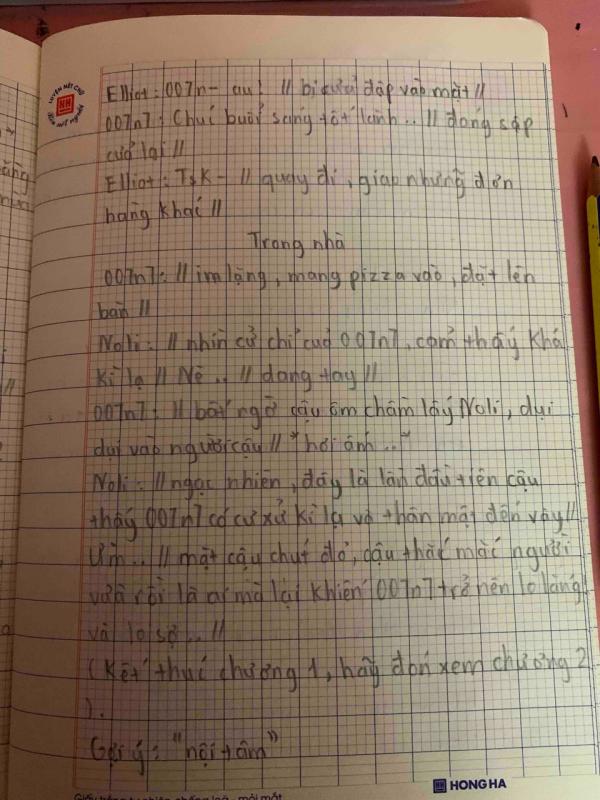 LUYỆN NÉT CHỮ
RÈN NẾT NGƯỜI
HH
Elliot: 007n- au! // bị cửa đập vào mặt //
007n7: Chúc buổi sáng tốt lành.. // đóng sập
cửa lại //
Elliot: Tsk- // quay đi, giao những đơn
hàng khác //
Trong nhà
007n7: // im lặng, mang pizza vào, đặt lên
bàn //
Noli: // nhìn cử chỉ của 007n7, cảm thấy khá
kì lạ // Nè .. // dang tay //
007n7: // bất ngờ cậu ôm chầm lấy Noli, dụi
dụi vào người cậu // "hơi ánh .."
Noli: // ngạc nhiên, đây là lần đầu tiên cậu
thấy 007n7 có cư xử kì lạ và thân mật đến vậy //
Ừm .. // mặt cậu chút đỏ, cậu thắc mắc người
vừa rồi là ai mà lại khiến 007n7 trở nên lo lắng
và lo sợ .. //
( Kết thúc chương 1, hãy đón xem chương 2
).
Gợi ý: "nội tâm"
HONG HA